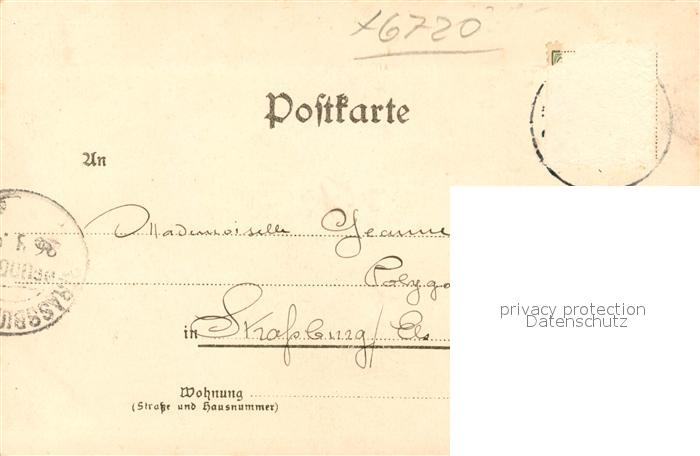 x6720
Postkarte
An
Mademoiselle Jeanne
Polygo
in Straßburg/Els
Wohnung
(Straße und Hausnummer)
STRASSBU
26 3
privacy protection
Datenschutz